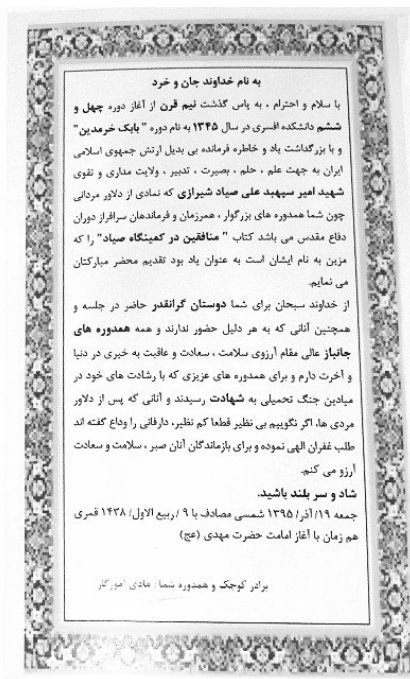 به نام خداوند جان و خرد
با سلام و احترام ، به پاس گذشت نیم قرن از آغاز دوره چهل و
ششم دانشکده افسری در سال ۱۳۴۵ به نام دوره "بابک خرمدین"
و با بزرگداشت یاد و خاطره فرمانده بی بدیل ارتش جمهوی اسلامی
ایران به جهت علم ، حلم ، بصیرت ، تدبیر ، ولایت مداری و تقوی
شهید امیر سپهبد علی صیاد شیرازی که نمادی از دلاور مردانی
چون شما همدوره های بزرگوار ، همرزمان و فرماندهان سرافراز دوران
دفاع مقدس می باشد کتاب " منافقین در کمینگاه صیاد" را که
مزین به نام ایشان است به عنوان یاد بود تقدیم محضر مبارکتان
می نمایم.
از خداوند سبحان برای شما دوستان گرانقدر حاضر در جلسه و
همچنین آنانی که به هر دلیل حضور ندارند و همه همدوره های
جانباز عالی مقام آرزوی سلامت ، سعادت و عاقبت به خیری در دنیا
و آخرت دارم و برای همدوره های عزیزی که با رشادت های خود در
میادین جنگ تحمیلی به شهادت رسیدند و آنانی که پس از دلاور
مردی ها، اگر نگوییم بی نظیر قطعا کم نظیر، دارفانی را وداع گفته اند
طلب غفران الهی نموده و برای بازماندگان آنان صبر ، سلامت و سعادت
آرزو می کنم.
شاد و سر بلند باشید.
جمعه ۱۹/ آذر/ ۱۳۹۵ شمسی مصادف با ۹ / ربیع الاول/ ۱۴۳۸ قمری
هم زمان با آغاز امامت حضرت مهدی (عج)
برادر کوچک و همدوره شما : هادی آموزگار